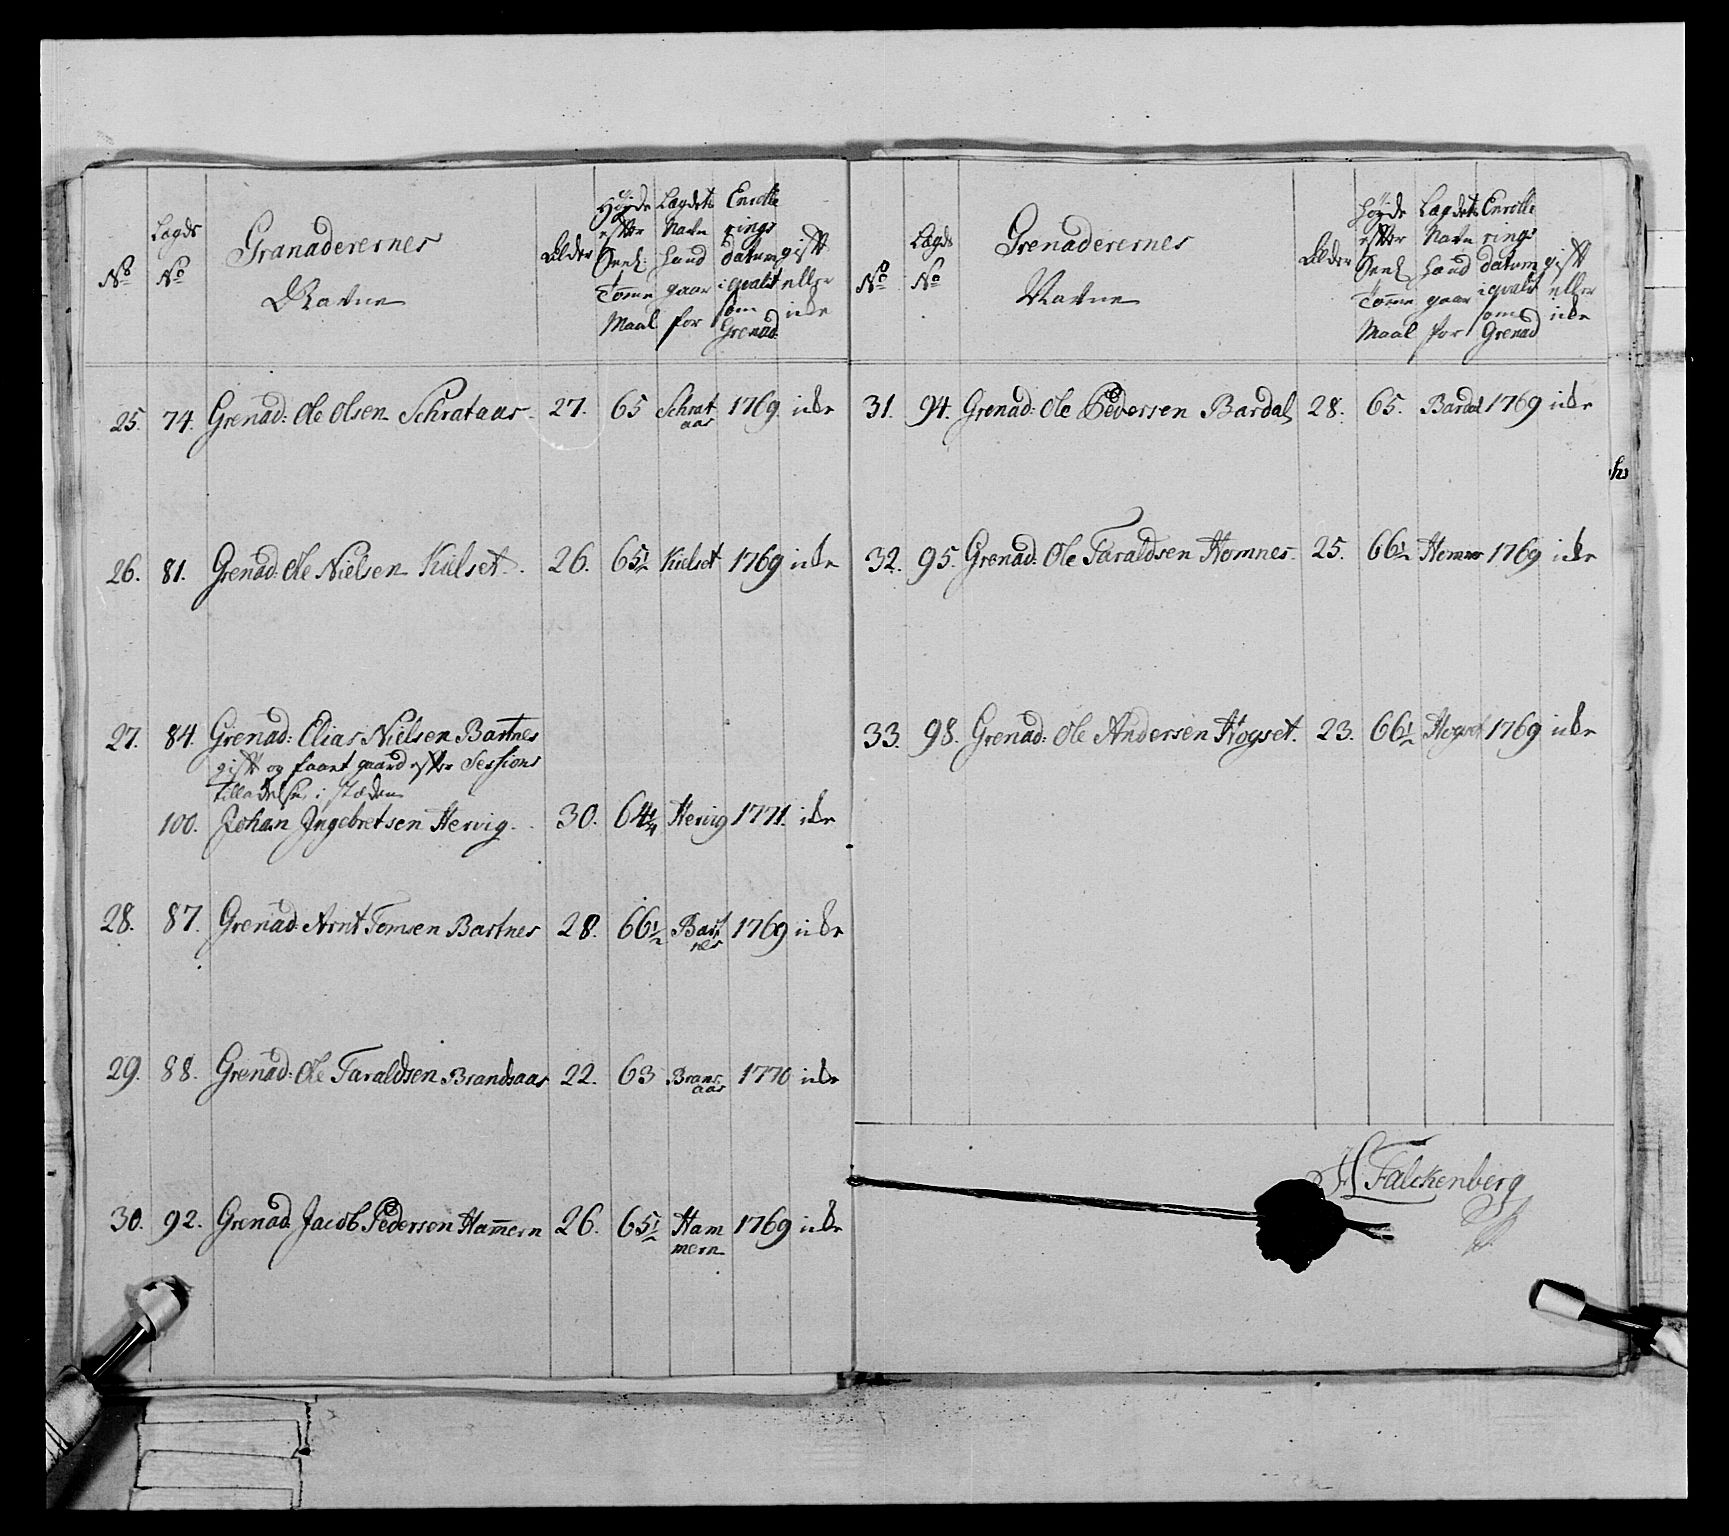 No
Lagds No
Granaderernes Navne
Alder
Høyde efter Seel: Tomme Maal
Lagdets Navn hand gaar for
Enrolle rings datum i qvalit som Grenad
gift eller icke
25. 74. Grenad: Ole Olsen Schrataas 27. 65 Schrataas 1769 icke
26. 81. Grenad: Ole Nielsen Kielset 26. 65½ Kielset 1769 icke
27. 84. Grenad: Elias Nielsen Bartnes
gift og faaet gaard efter Sessions
tilladelse, i stæden
100. Johan Ingebretsen Hervig 30. 64¼ Hervig 1771. icke
28. 87. Grenad: Arnt Tomsen Bartnes 28. 66½ Bartnes 1769 icke
29. 88. Grenad: Ole Taraldsen Brandsaas 22. 63 Bransaas 1770 icke
30. 92. Grenad Jacob Pedersen Ham̄ern 26. 65½ Hammern 1769 icke
No
Lagds No
Grenaderernes Navne
Alder
Høyde efter Seel Tomme Maal
Lagdets Navn hand gaar for
Enrolle rings datum i qvalit som Grenad
gift eller icke
31. 94. Grenad: Ole Pedersen Bardal 28. 65. Bardal 1769 icke
32. 95. Grenad: Ole Taraldsen Homnes 25. 66½ Homnes 1769 icke
33. 98. Grenad: Ole Andersen Hogset. 23. 66½ Hogset 1769 icke
H Falckenberg